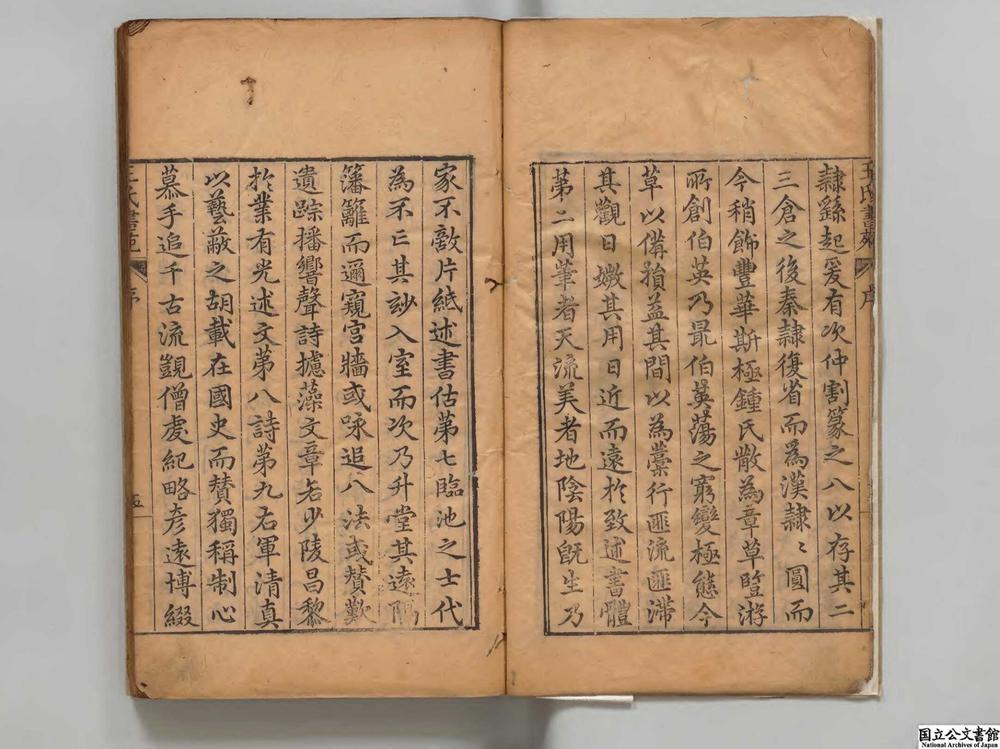 隷繇起爰有次仲割篆之八以存其二
三倉之後秦隷復省而爲漢隷〻圓而
今稍飾豐華斯極鍾氏散為章草暨游
所創伯英乃最伯英蕩之窮變極態今
草以備損益其間以為藁行匪流匪滯
其觀日媺其用日近而遠於致述書體
苐二用筆者天流美者地陰陽既生乃
王氏書苑
序
家不敵片紙述書估苐七臨池之士代
為不亡其玅入室而次乃升堂其遠隔
籓籬而邇窺宮牆或咏追八法或賛歎
遺踪播響聲詩攄藻文章若少陵昌黎
於業有光述文苐八詩苐九右軍清真
以藝蔽之胡載在國史而賛獨稱制心
慕手追千古流覬僧虔紀略彦遠博綴
王氏書苑
序
五
国立公文書館
National Archives of Japan